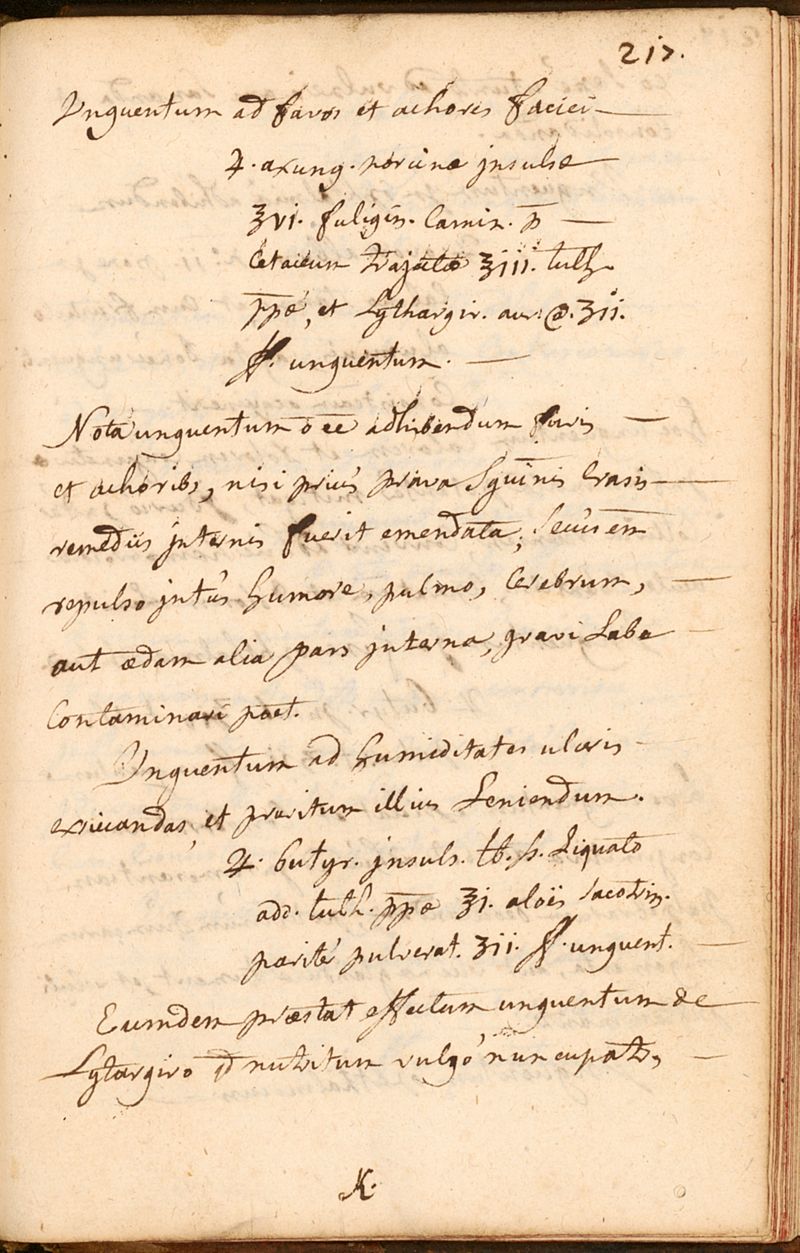 217.
Unguentum ad favos et achores faciei
♃. axung. porcinæ jnsulsæ
ʒvi. fuligin. Camin. p̄
Cetaceum trajectæ ʒiii. tuth.
p̄p̄æ, et Lythargir. aur. @. ʒii.
ff. unguentum.
Nota unguentum ō eē adhibendum favis
et achoribs, nisi prius prava Sguinis Crasis
remediis jnternis fuerit emendata; Secus em̄
repulso jntus humore, pulmo, Cerebrum,
aut ædam alia pars jnterna, gravi Labe
Contaminari poet.
Unguentum ad humiditates ulceris
exsicandas, et pruritum illius Leniendum.
♃. butyr. jnsuls. ℔. ß. Liquato
add. tuth. p̄p̄æ ʒi. aloës Sacotrin.
pariter pulverat. ʒii. ff. unguent.
Eumdem præstat effectum unguentum de
Lytargiro nutritum vulgò nuncupatr,
K.